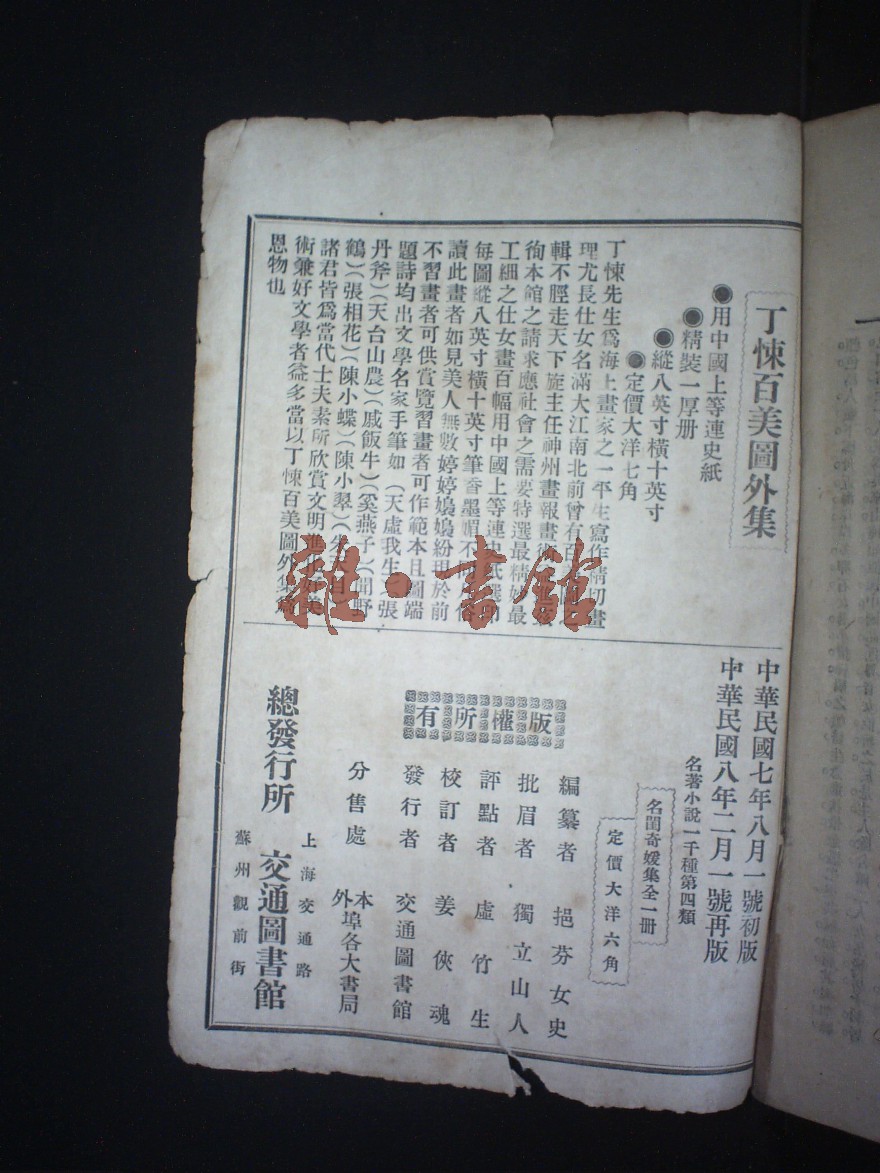 丁悚百美圖外集
●用中國上等連史紙
●精裝一厚册
●縱八英寸橫十英寸
●定價大洋七角
丁悚先生爲海上畫家之一平生寫作精切畫
理尤長仕女名滿大江南北前曾有百美圖之
輯不脛走天下旋主任神州畫報畫術
徇本館之請求應社會之需要特選最精妙最
工細之仕女畫百幅用中國上等連史紙
每圖縱八英寸橫十英寸筆香墨媚不
讀此畫者如見美人無數婷婷嬝嬝紛現於前
不習畫者可供賞覽習畫者可作範本且圖端
題詩均出文學名家手筆如（天虛我生）（張
丹斧）（天台山農）（戚飯牛）（奚燕子）（聞野
鶴）（張相花）（陳小蝶）（陳小翠）
諸君皆爲當代士夫素所欣賞文明進化好美
術兼好文學者益多當以丁悚百美圖外集爲
恩物也
中華民國七年八月一號初版
中華民國八年二月一號再版
名著小說一千種第四類
名閨奇媛集全一冊
定價大洋六角
版權所有
編纂者 挹芬女史
批眉者 獨立山人
評點者 虛竹生
校訂者 姜俠魂
發行者 交通圖書館
分售處 本外埠各大書局
總發行所 上海交通路 蘇州觀前街 交通圖書館
雜·書館